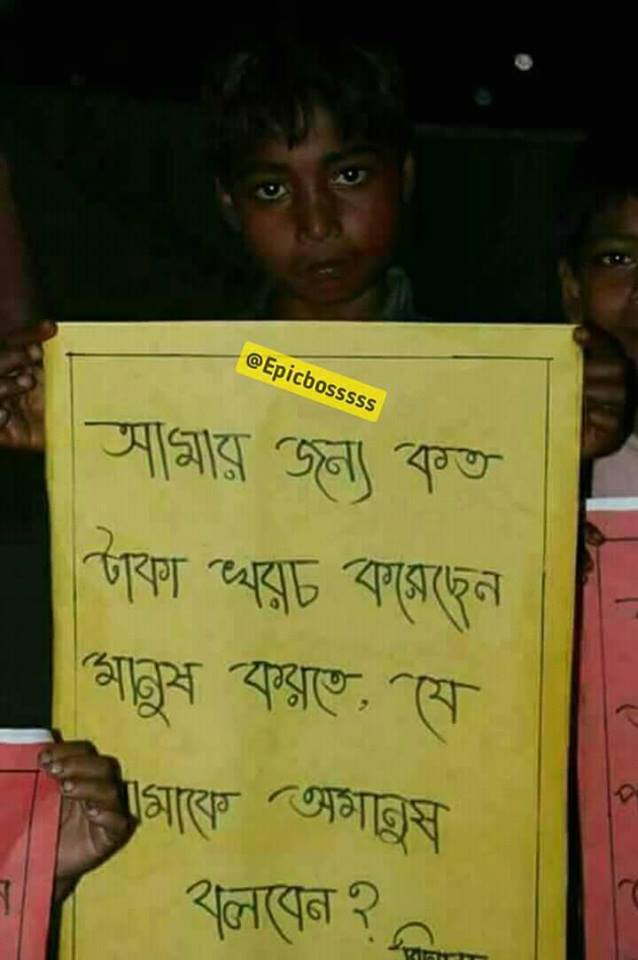 @Epicbosssss
আমার জন্য কত
টাকা খরচ করেছেন
মানুষ করতে, যে
মাকে অমানুষ
বলবেন?